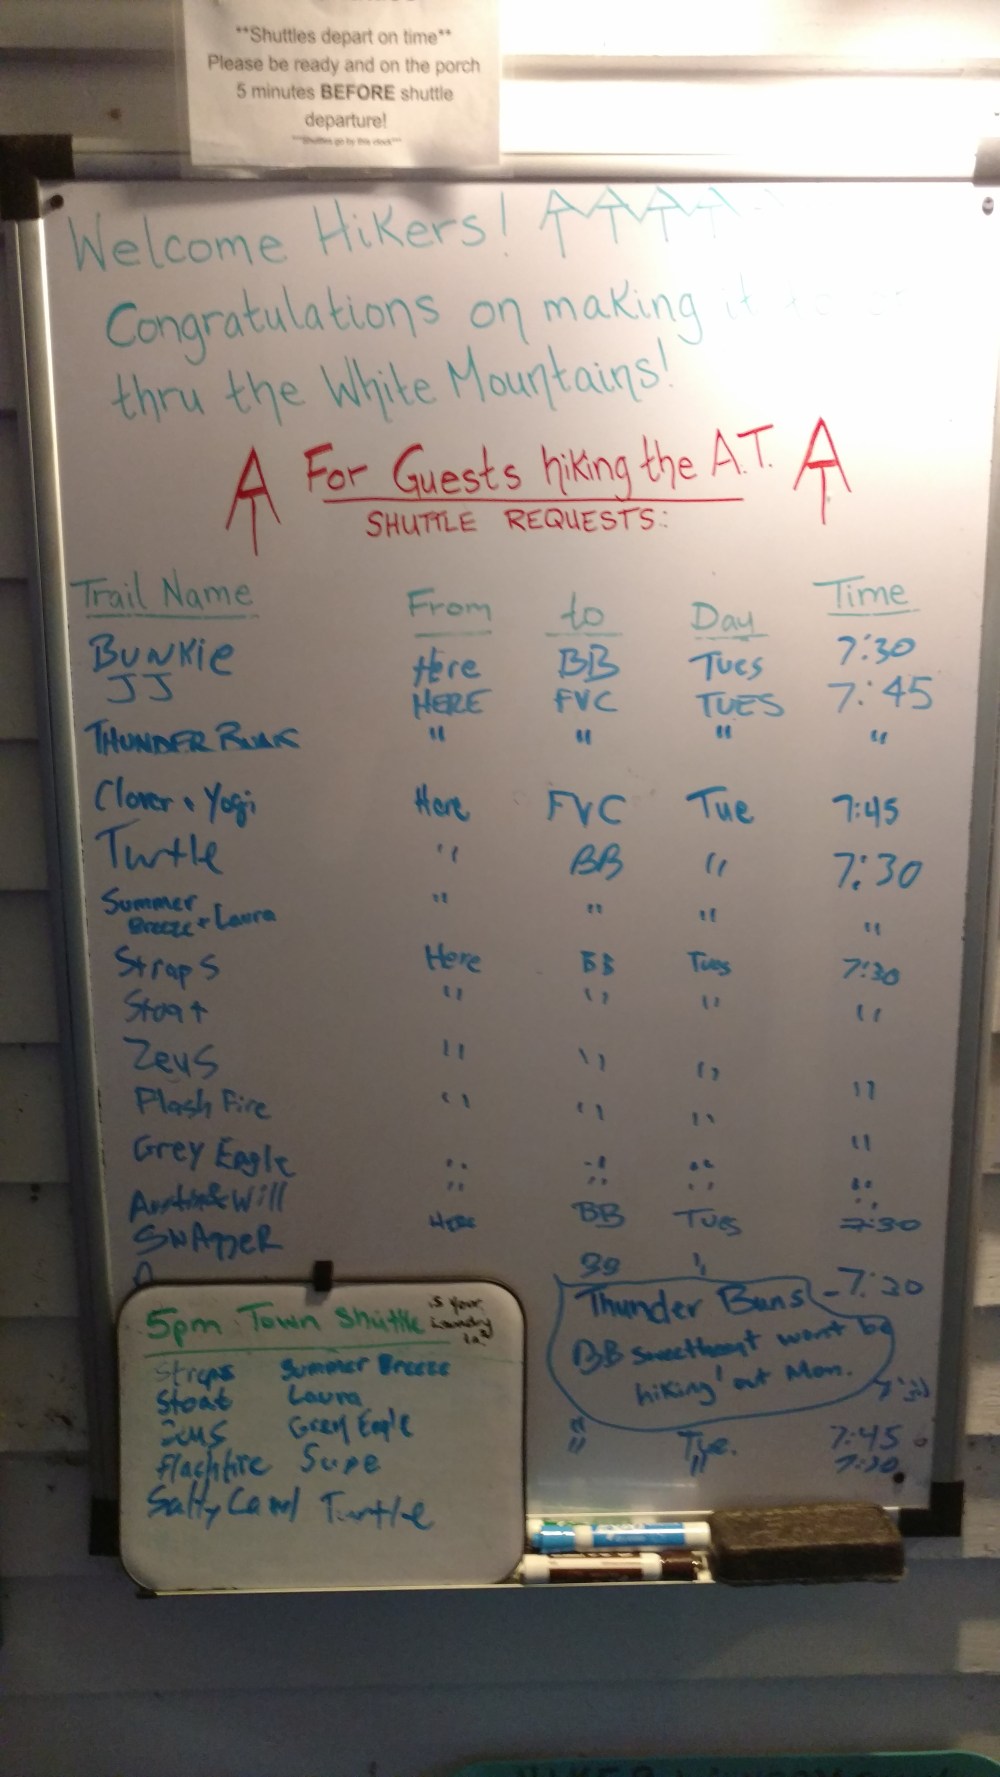 **Shuttles depart on time**
Please be ready and on the porch
5 minutes BEFORE shuttle
departure!
**Shuttles go by this clock**
Welcome Hikers!
Congratulations on making it to or
thru the White Mountains!
For Guests hiking the A.T.
SHUTTLE REQUESTS:
Trail Name From to Day Time
BUNKIE Here BB Tues 7:30
JJ HERE FVC TUES 7:45
THUNDER BUNS " " " "
Clover + Yogi Here FVC Tue 7:45
Turtle " BB " 7:30
Summer Breeze + Laura " " " "
Straps Here BB Tues 7:30
Stoat " " " "
Zeus " " " "
Flash Fire " " " "
Grey Eagle " " " "
Austin & Will " " " "
SWAGGER HERE BB TUES 7:30
BB " 7:30
Thunder Buns
BB sweetheart won't be
hiking out Mon.
" Tue. 7:45
" " 7:30
5pm Town Shuttle is your laundry in?
Straps Summer Breeze
Stoat Laura
Zeus Grey Eagle
Flashfire
Salty Turtle